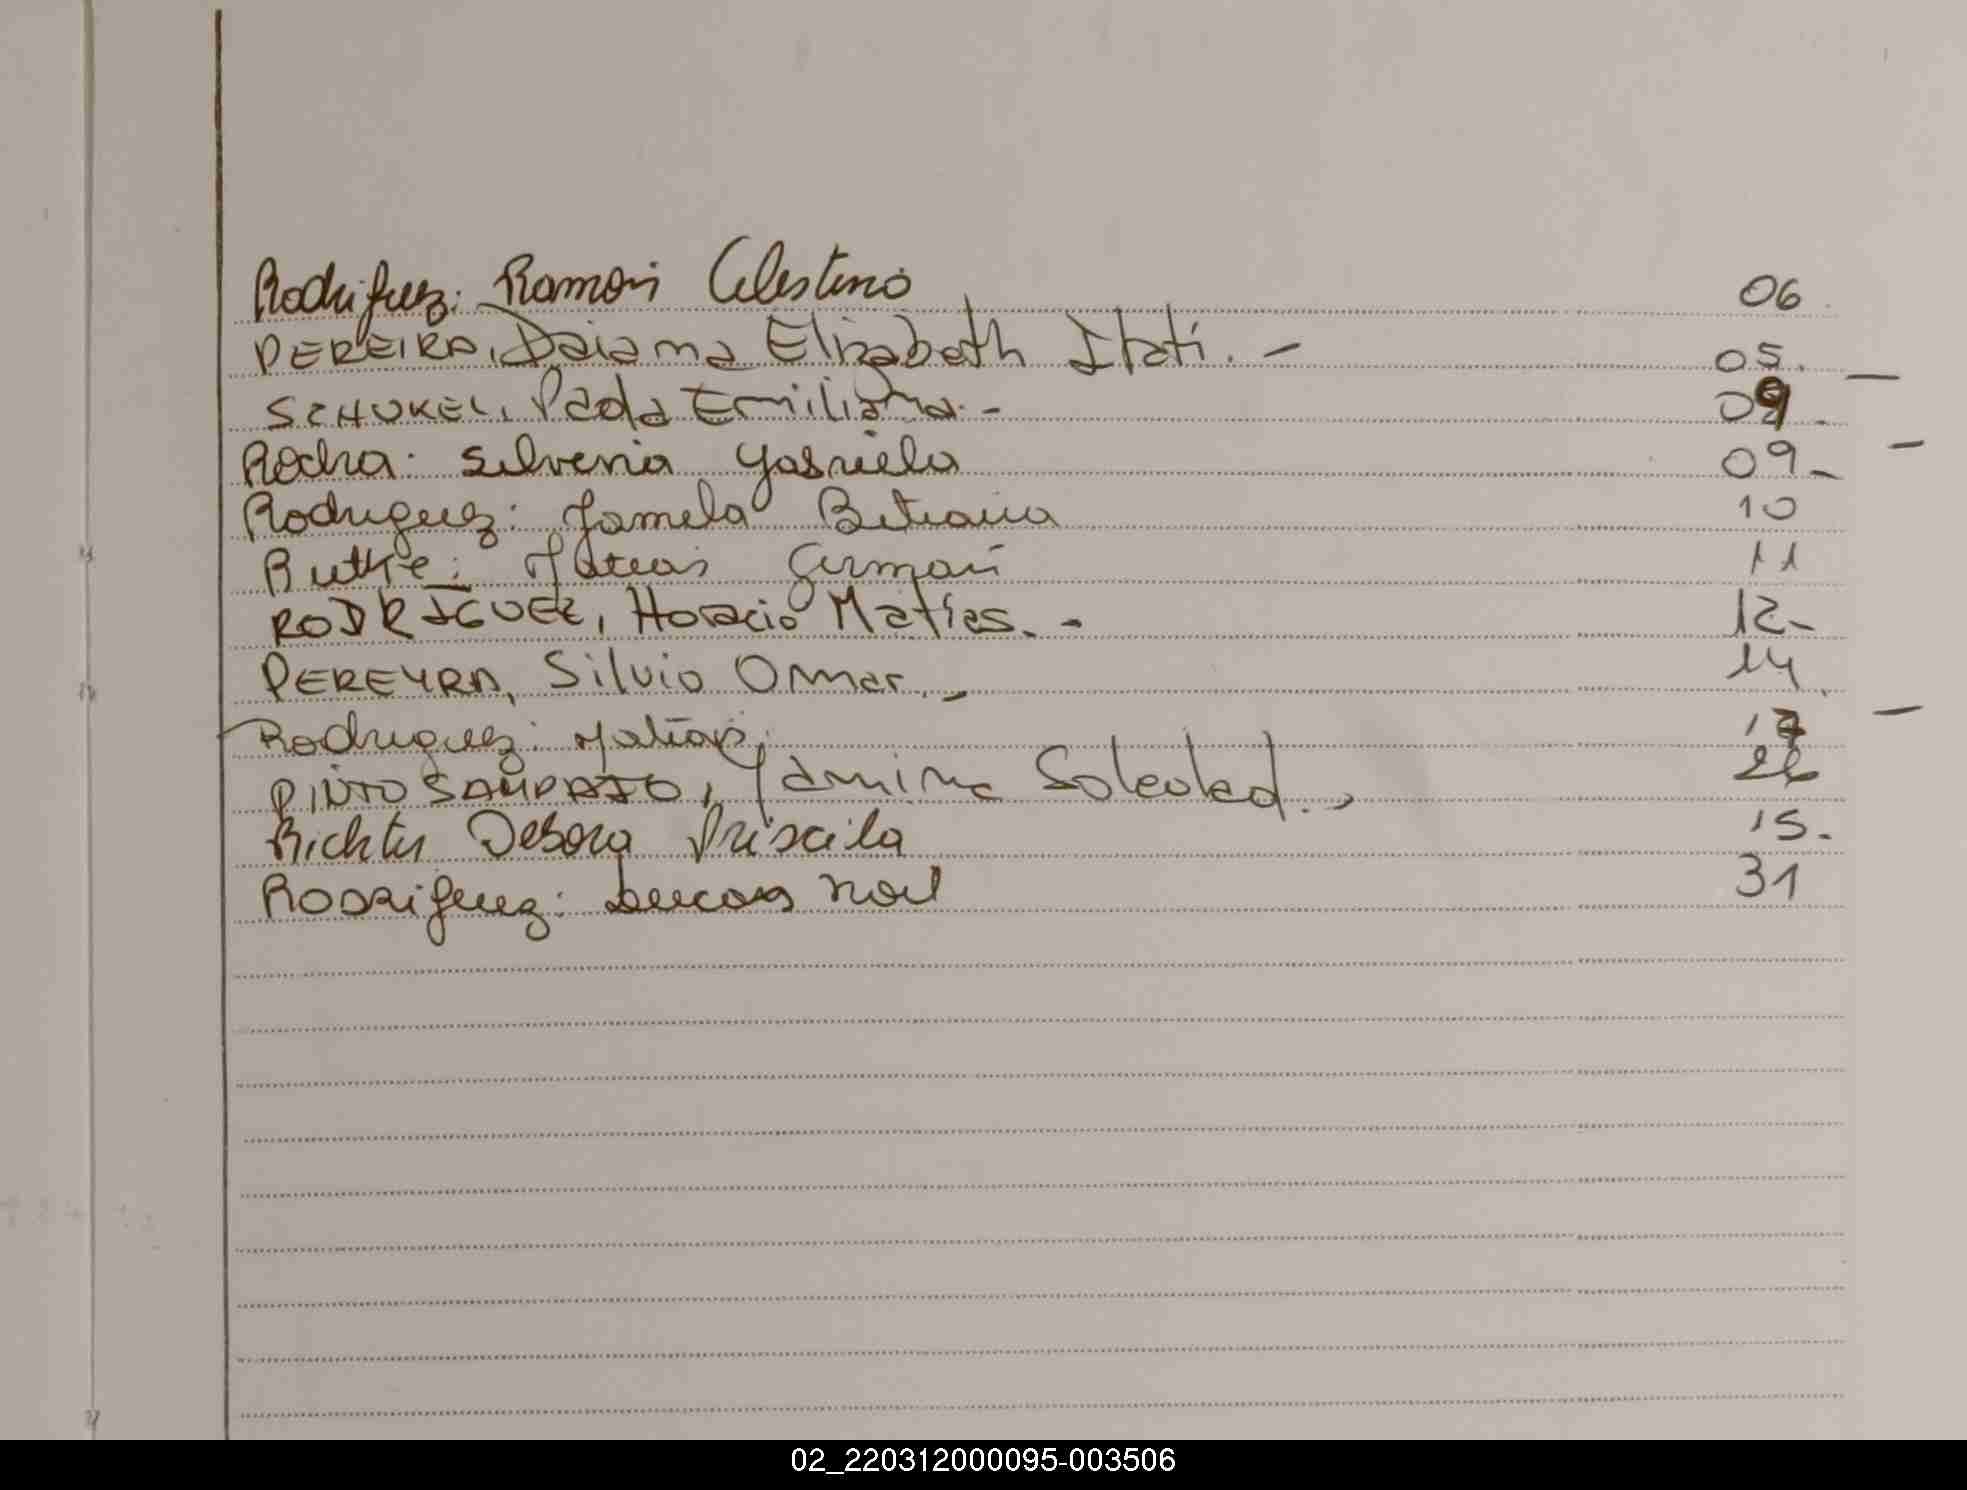 Rodriguez: Ramon Celestino 06
PEREIRA, Daiama Elizabeth Itatí. - 05. -
SCHUKEL, Paola Emiliana. - 09 -
Rocha: Silveria Gabriela 09 - -
Rodriguez: Pamela Betiana 10
Butke: Matias German 11
RODRIGUEZ, Horacio Matías. - 12 -
PEREYRA, Silvio Omar. - 14.
Rodriguez: Matias. 17 -
PINTO SAMPAIO, Yamina Soledad. - 26
Richter Debora Priscila 15.
Rodriguez: Lucas Noel 31
02_220312000095-003506